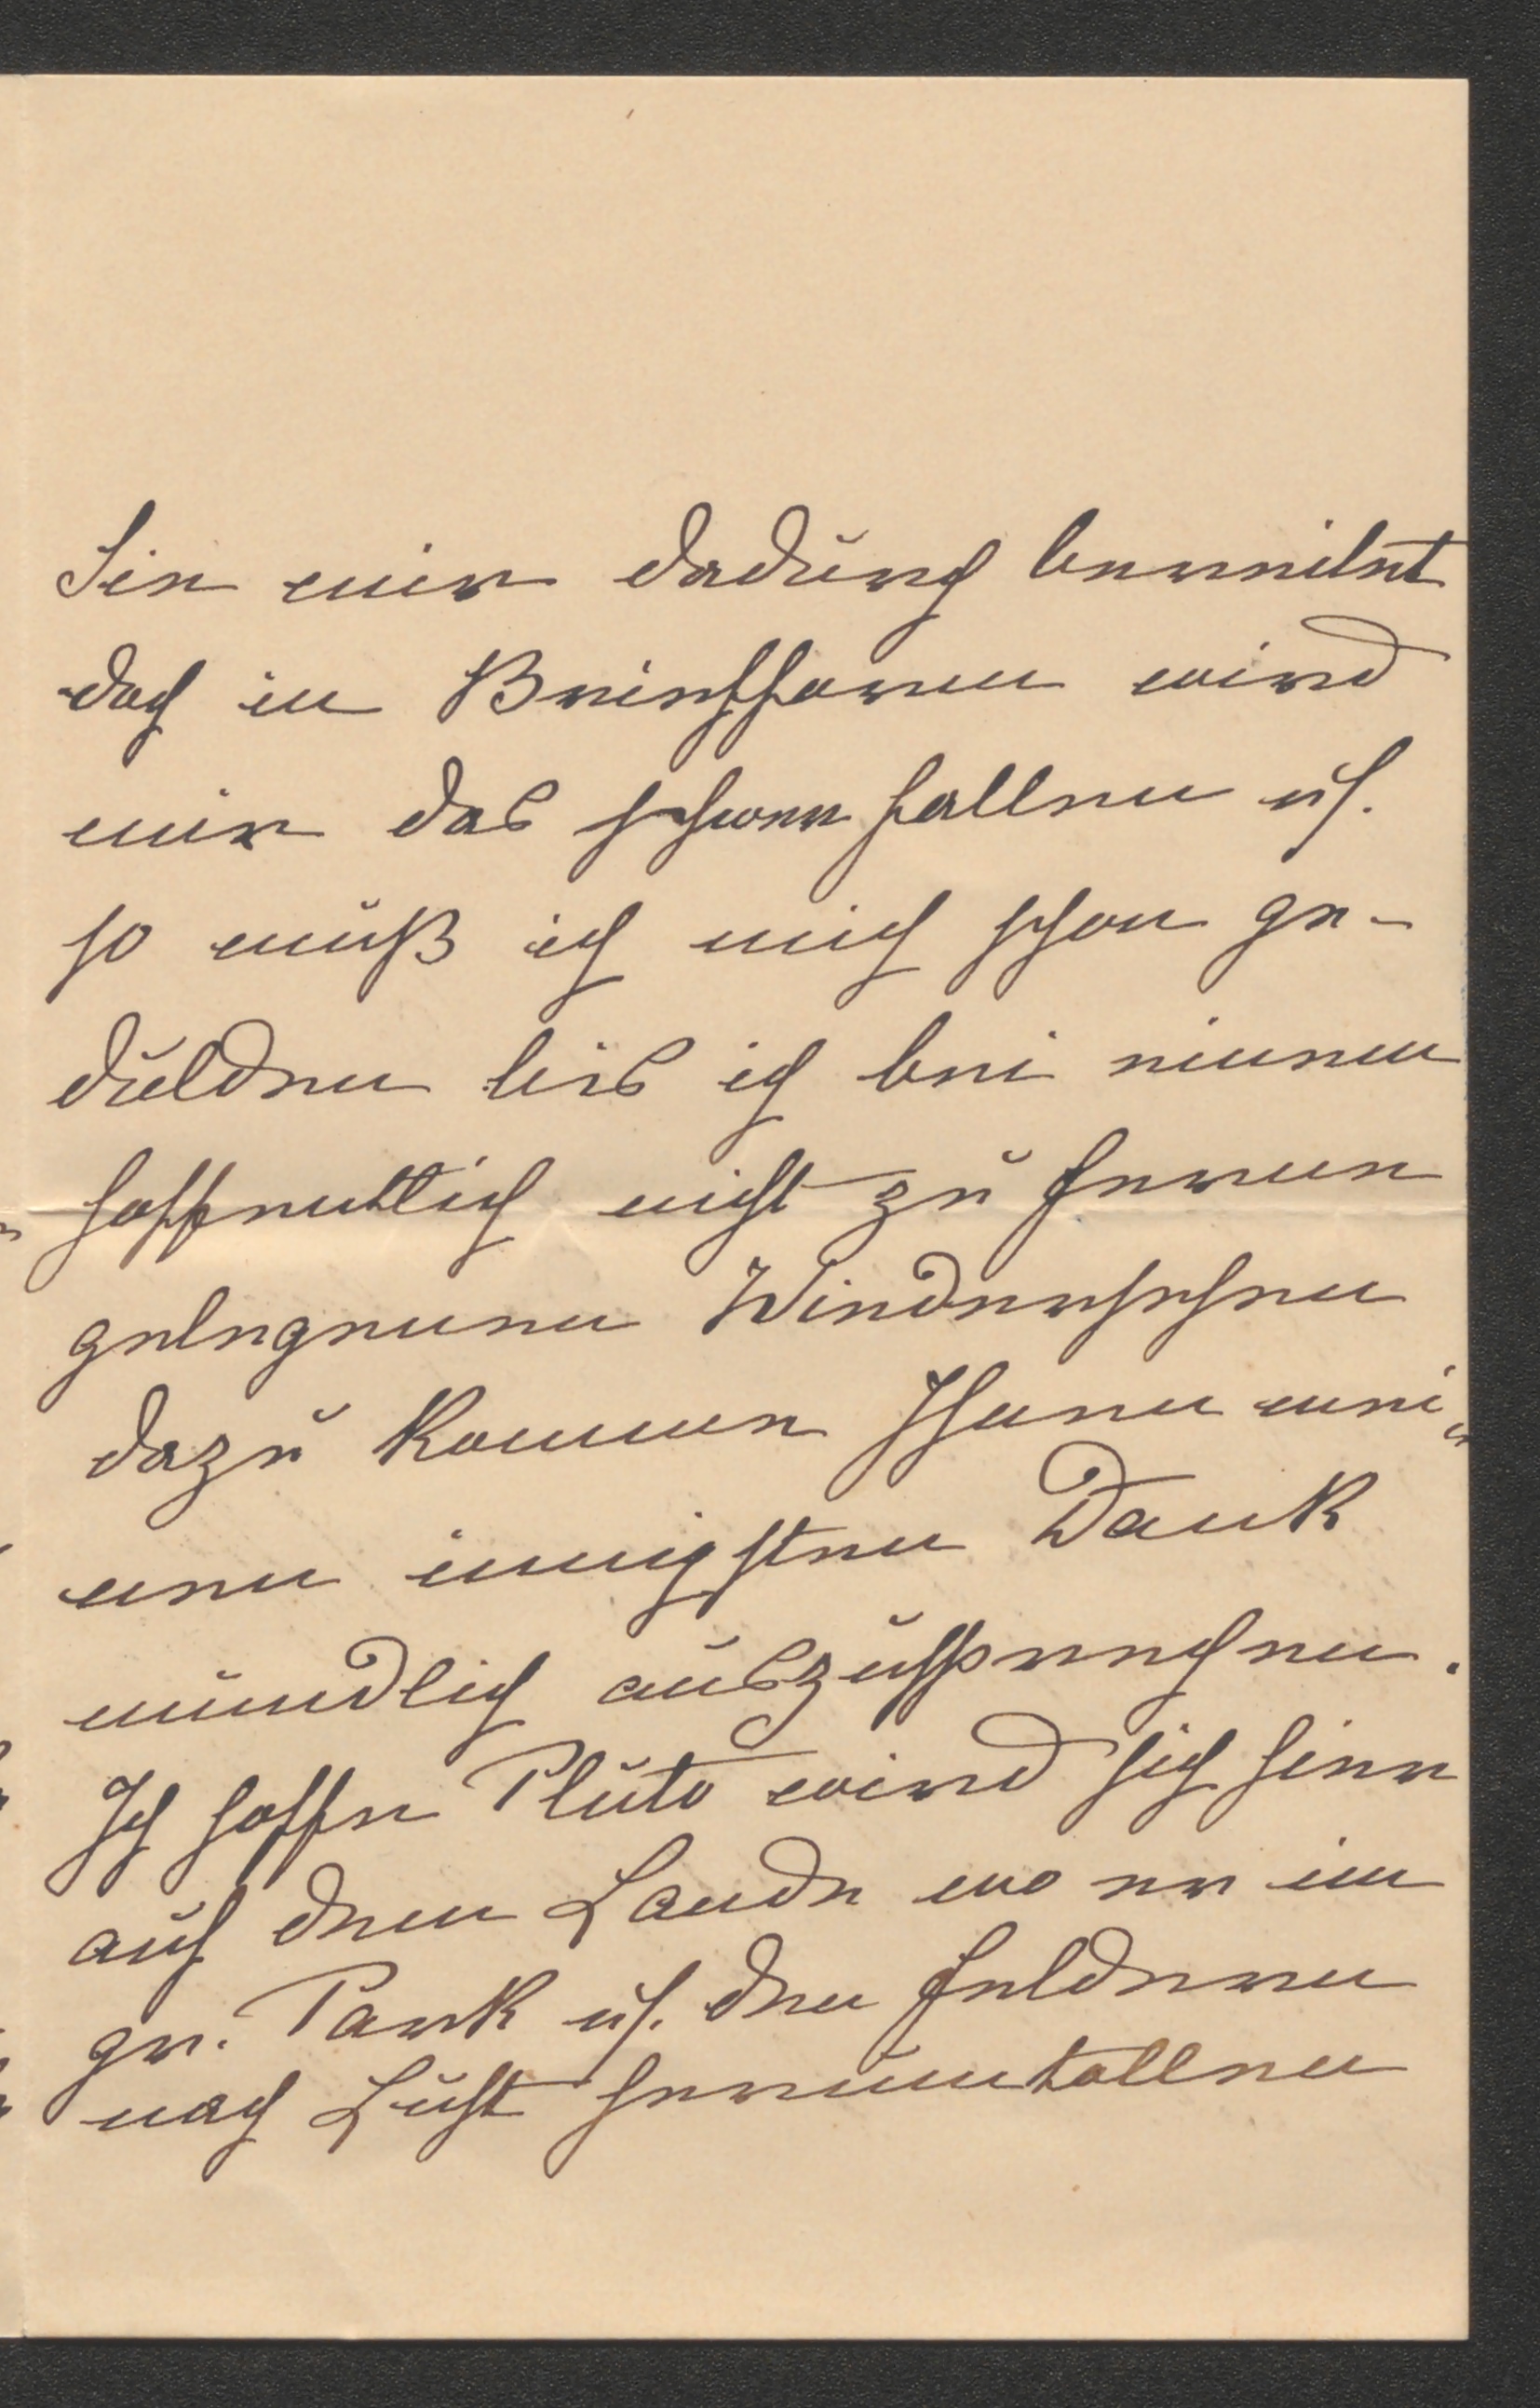 Sie mir dadurch bereitet
doch in Briefform wird
mir das schwer fallen u.
so muß ich mich schon ge-
dulden bis ich bei einem
hoffentlich nicht zu ferne
gelegenen Wiedersehen
dazu komme Ihnen mei-
nen innigsten Dank
mündlich auszusprechen.
Ich hoffe Pluto wird sich hier
auf dem Lande wo er im
gr. Park u. den Feldern
nach Lust herumtollen